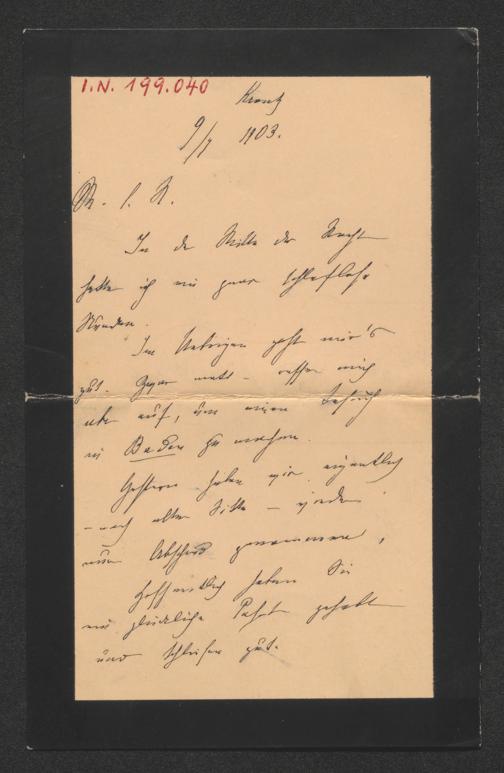 I.N. 199.040
9/7 1903.
In der Stille der Nacht
hatte ich ein paar schlaflose
Stunden.
Im Uebrigen geht mir's
gut. matt – raffe mich
aber auf, um einen Besuch
in Baden zu machen.
Gestern haben wir eigentlich
– nach alter Sitte – wieder
nur Abschied genommen,
Hoffentlich haben Sie
eine glückliche Fahrt gehabt
und schliefen gut.